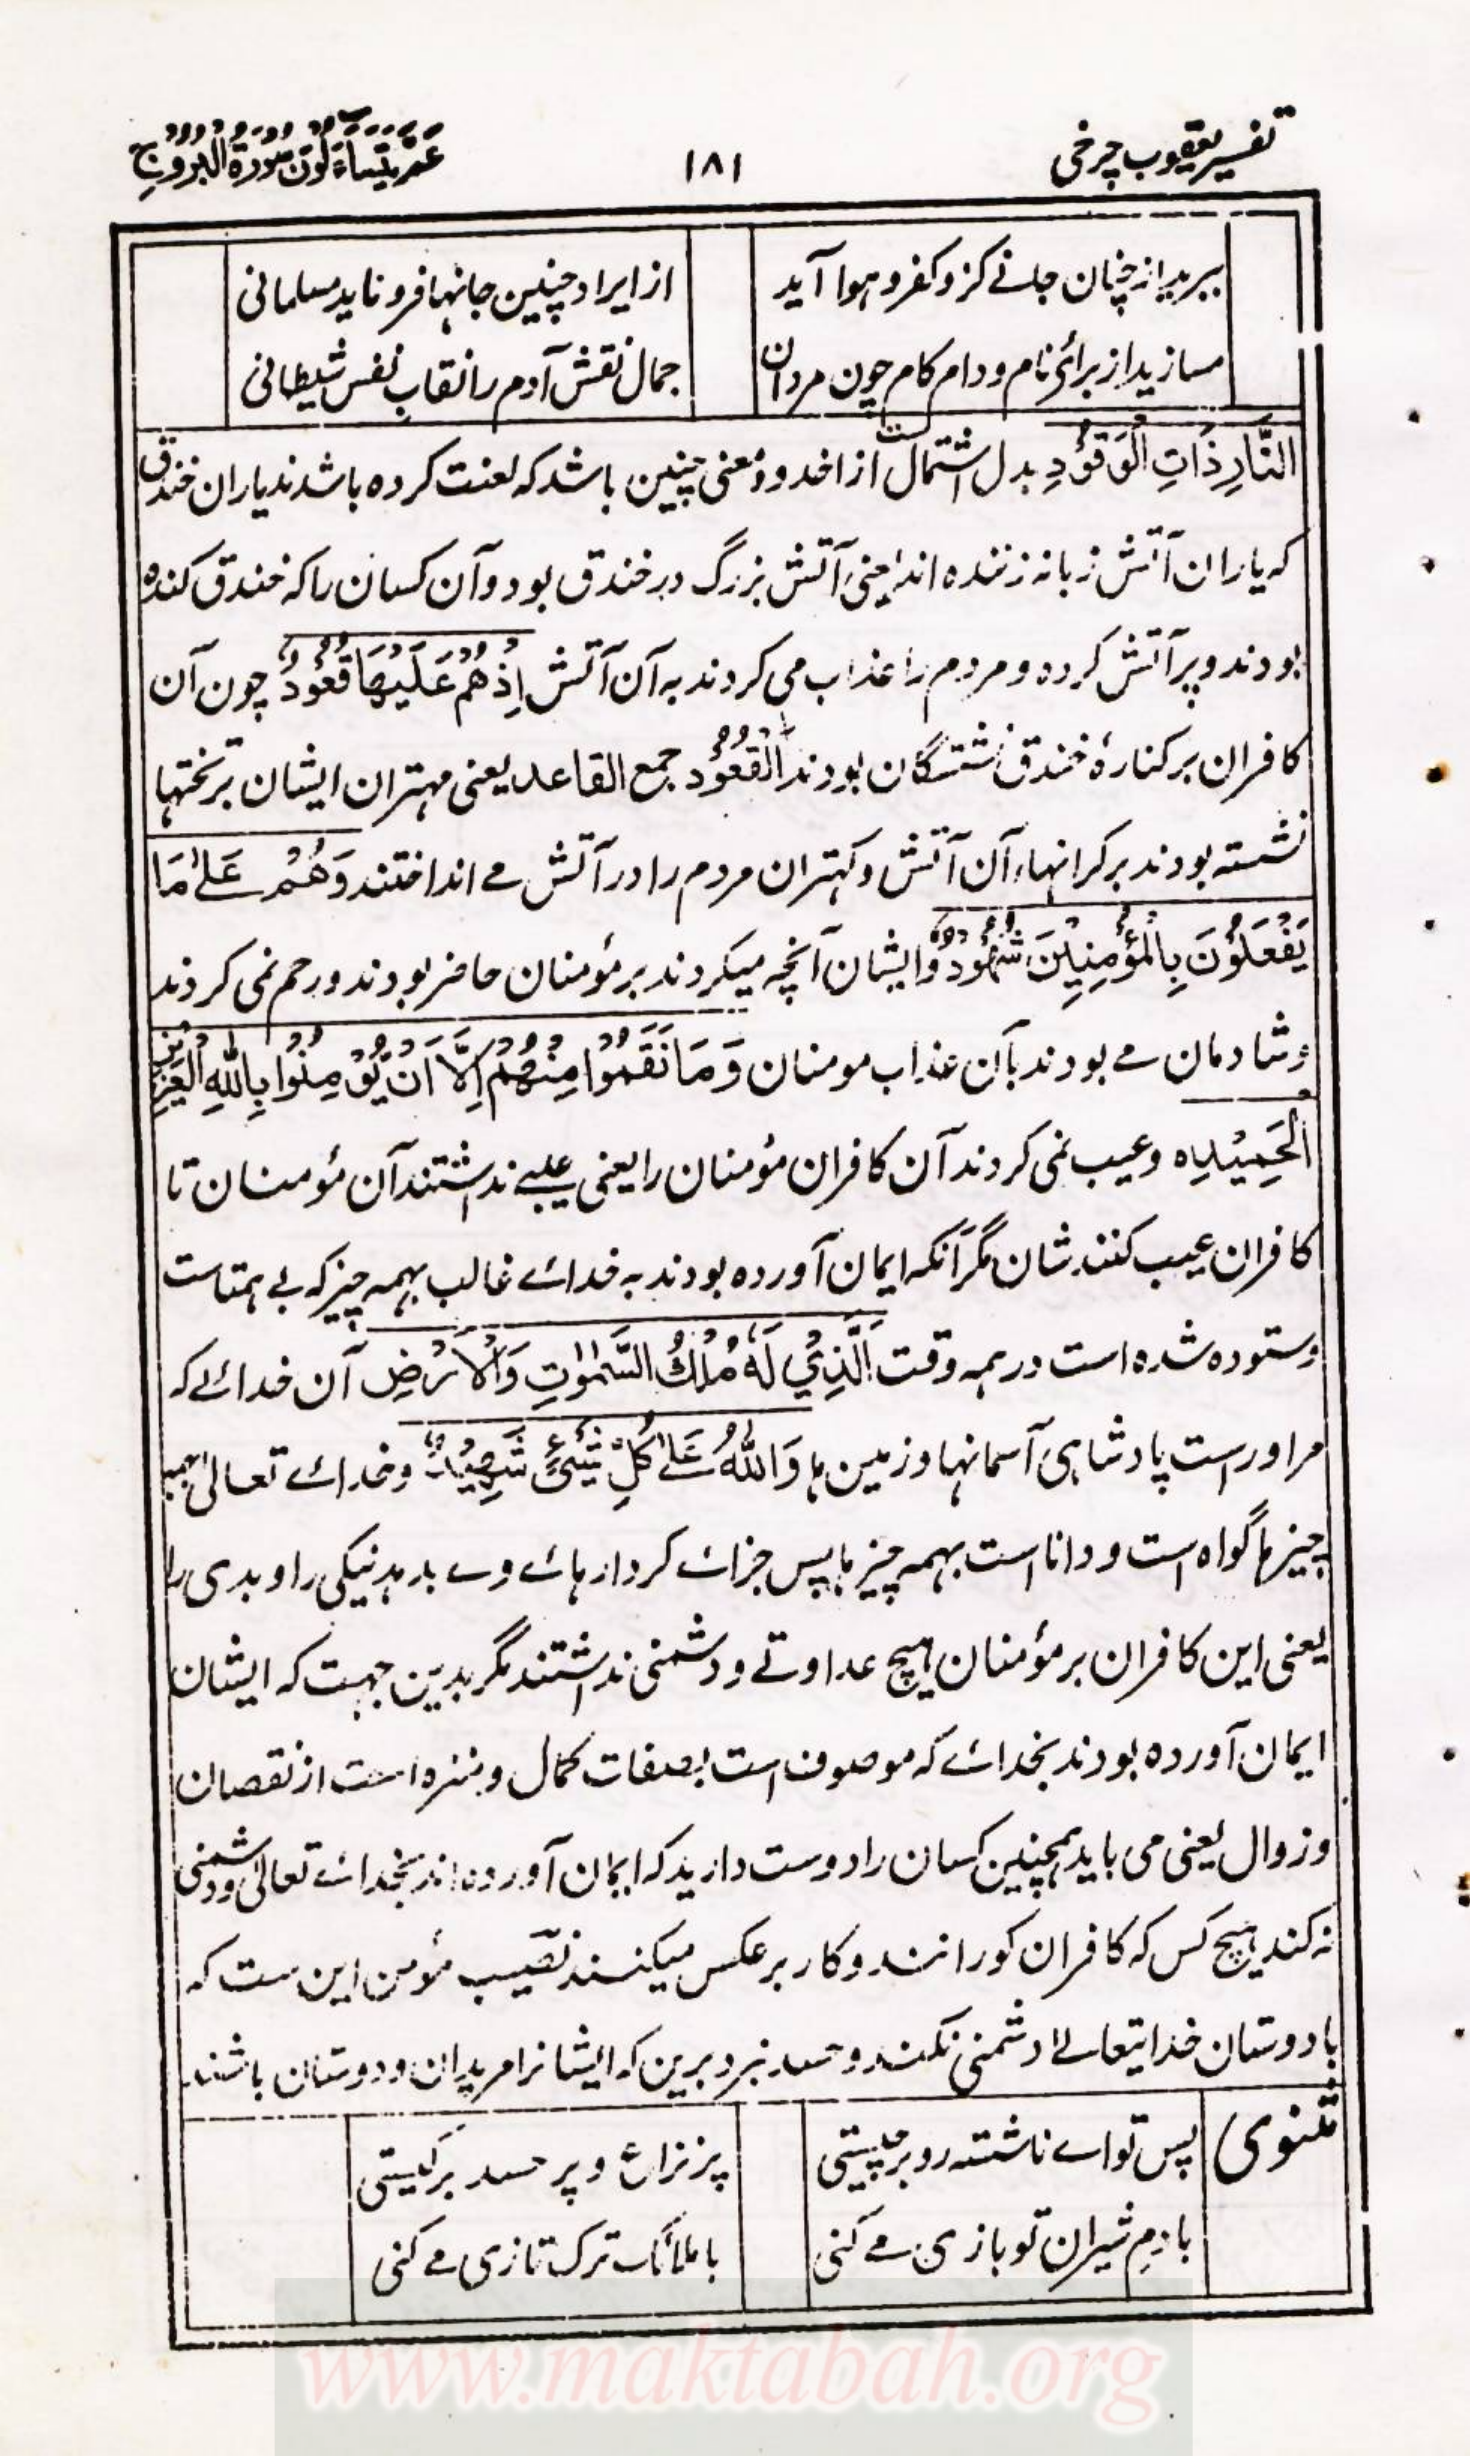 تفسیر یعقوب چرخی
۱۸۱
عَمَّ یَتَسَآءَلُونَ سُورَةُ الْبُرُوجِ
ببرید از چنان جانے کزو کفر و ہوا آید
از ایراد چنین جانہا فرو ناید مسلمانی
مسازید از برائ نام و دام کام چون مردان
جمال نقش آدم را نقاب نفس شیطانی
النَّارِ ذَاتِ الْوَقُوْدِ بدل اشتمال ست از اخدود و معنی چنین باشد کہ لعنت کردہ باشند یاران خندق
کہ یاران آتش زبانہ زنندہ اند یعنی آتش بزرگ در خندق بود و آن کسان را کہ خندق کندہ
بودند و پر آتش کردہ و مردم را عذاب می کردند بہ آن آتش اِذْ هُمْ عَلَيْهَا قُعُوْدٌ چون آن
کافران بر کنارۂ خندق نشستگان بودند اَلْقُعُوْد جمع القاعد یعنی مہتران ایشان بر تختہا
نشستہ بودند بر کرانہاء آن آتش و کہتران مردم را در آتش مے انداختند وَهُمْ عَلٰى مَا
يَفْعَلُوْنَ بِالْمُؤْمِنِيْنَ شُهُوْدٌ ہ و ایشان آنچہ میکردند بر مؤمنان حاضر بودند و رحم نمی کردند
و شادمان مے بودند بآن عذاب مومنان وَمَا نَقَمُوْا مِنْهُمْ اِلَّا اَنْ يُّؤْمِنُوْا بِاللّٰهِ الْعَزِيْزِ
الْحَمِيْدِ ہ و عیب نمی کردند آن کافران مؤمنان را یعنی عیبے نداشتند آن مؤمنان تا
کافران عیب کنند شان مگر آنکہ ایمان آوردہ بودند بہ خدائے غالب بہمہ چیز کہ بے ہمتاست
و ستودہ شدہ است در ہمہ وقت اَلَّذِيْ لَهٗ مُلْكُ السَّمٰوٰتِ وَالْاَرْضِ آن خدائے کہ
مر اوراست پادشاہی آسمانہا و زمین ہا وَاللّٰهُ عَلٰى كُلِّ شَيْءٍ شَهِيْدٌ و خدائے تعالیٰ بہمہ
چیزہا گواہ است و دانا است بہمہ چیزہا پس جزائے کردارہائے وے بدہد نیکی را و بدی را
یعنی این کافران بر مؤمنان ہیچ عداوتے و دشمنی نداشتند مگر بدین جہت کہ ایشان
ایمان آوردہ بودند بخدائے کہ موصوف است بصفات کمال و منزہ است از نقصان
و زوال یعنی می باید ہمچنین کسان را دوست دارید کہ ایمان آوردہ اند بخدائے تعالیٰ و دشمنی
نہ کند ہیچ کس کہ کافران کورانند و کار بر عکس میکنند نصیب مؤمن این ست کہ
با دوستان خدایتعالےٰ دشمنی نکند و حسد نبرد برین کہ ایشانرا مریدان و دوستان باشند
مثنوی
پس تو اے ناشستہ رو بر چیستی
پر نزاع و پر حسد بر کیستی
با دم شیران تو بازی مے کنی
با ملائک ترک تازی مے کنی
www.maktabah.org